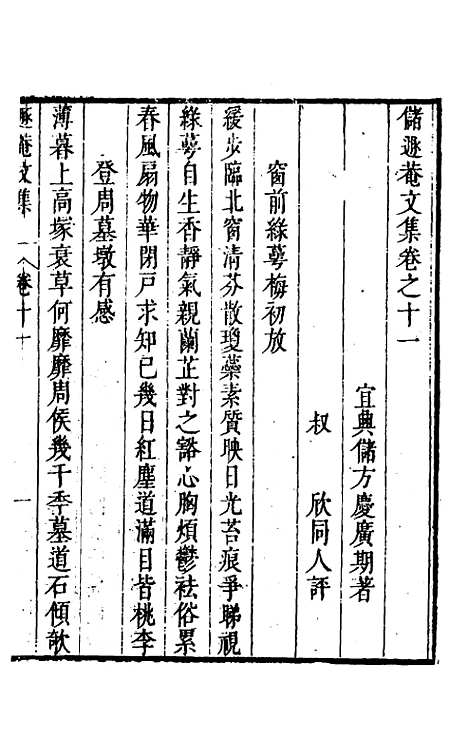 儲遯菴文集卷之十一
宜興儲方慶廣期著
叔 欣同人評
窗前綠萼梅初放
緩步臨北窗清芬散瓊蘂素質映日光苔痕爭睇視
綠萼自生香靜氣親蘭芷對之豁心胸煩鬱袪俗累
春風扇物華閉戶求知已幾日紅塵道滿目皆桃李
登周墓墩有感
薄暮上高塚衰草何靡靡周侯幾千季墓道石傾欹
遯菴文集 卷十一 一